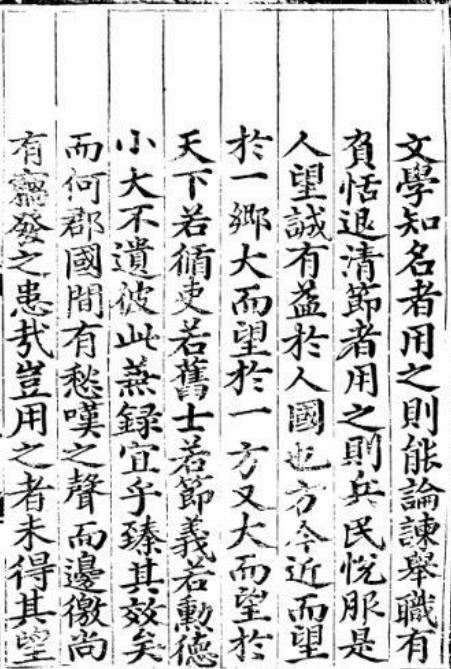 文學知名者用之則能論諫舉職有
負恬退清節者用之則兵民悅服是
人望誠有益於人國也方今近而望
於一鄉大而望於一方又大而望於
天下若循吏若舊士若節義若勳德
小大不遺彼此蒹録宜乎臻其效矣
而何郡國間有愁嘆之聲而邊徼尚
有竊發之患㢤豈用之者未得其望